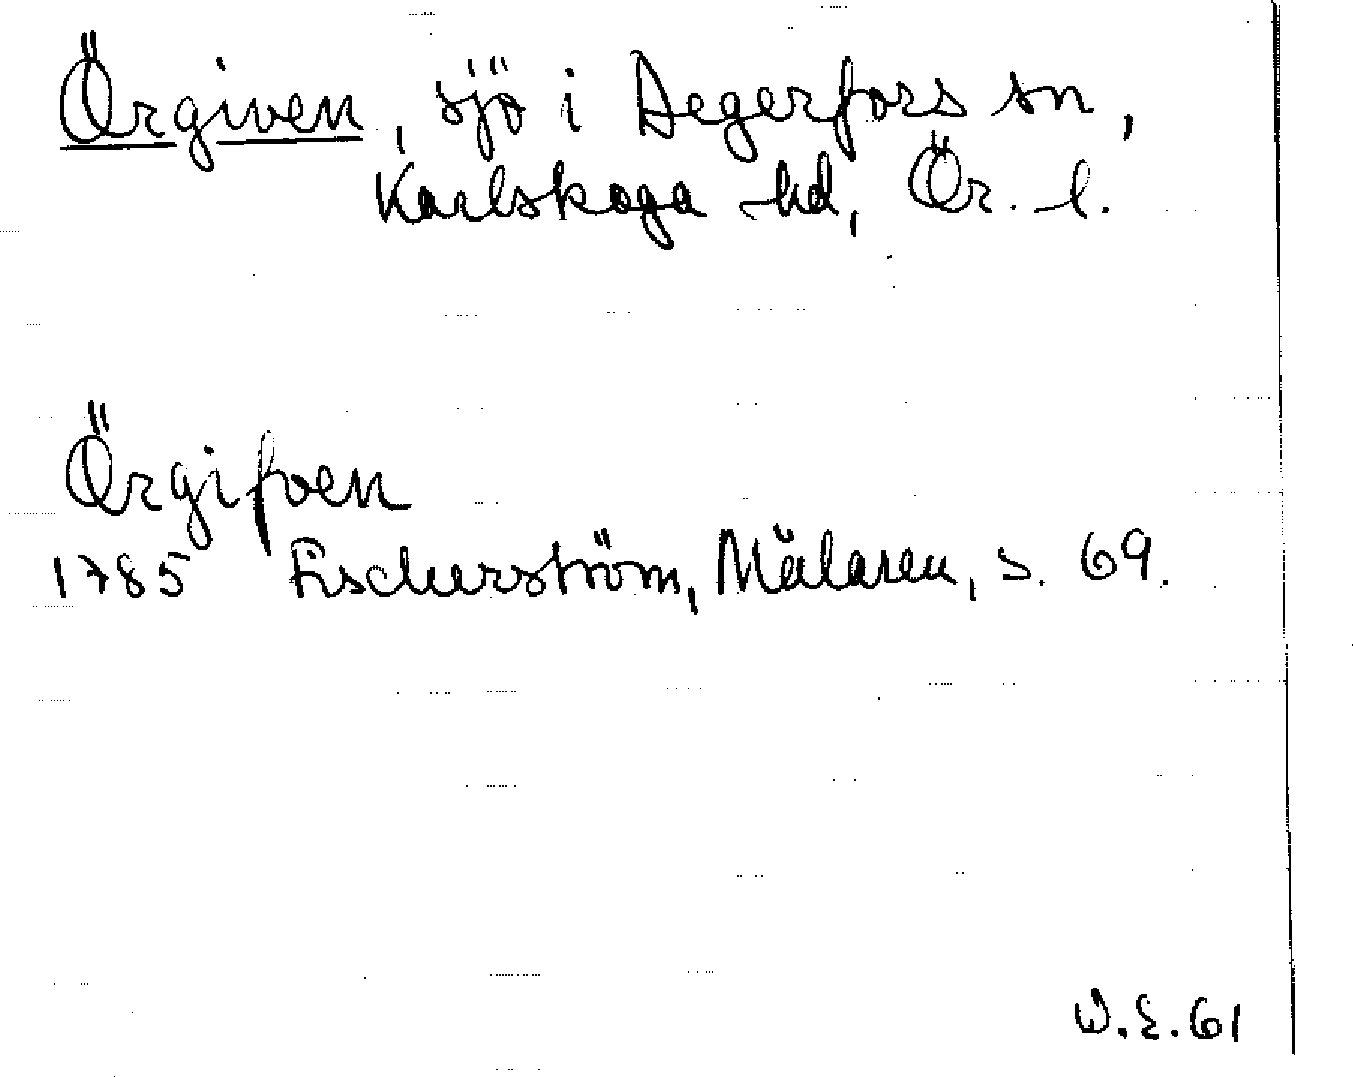 Örgiven, sjö i Degerfors sn,
Karlskoga hd, Ör. l.
Örgifven
1785 Fischerström, Mälaren, s. 69.
W.E.61